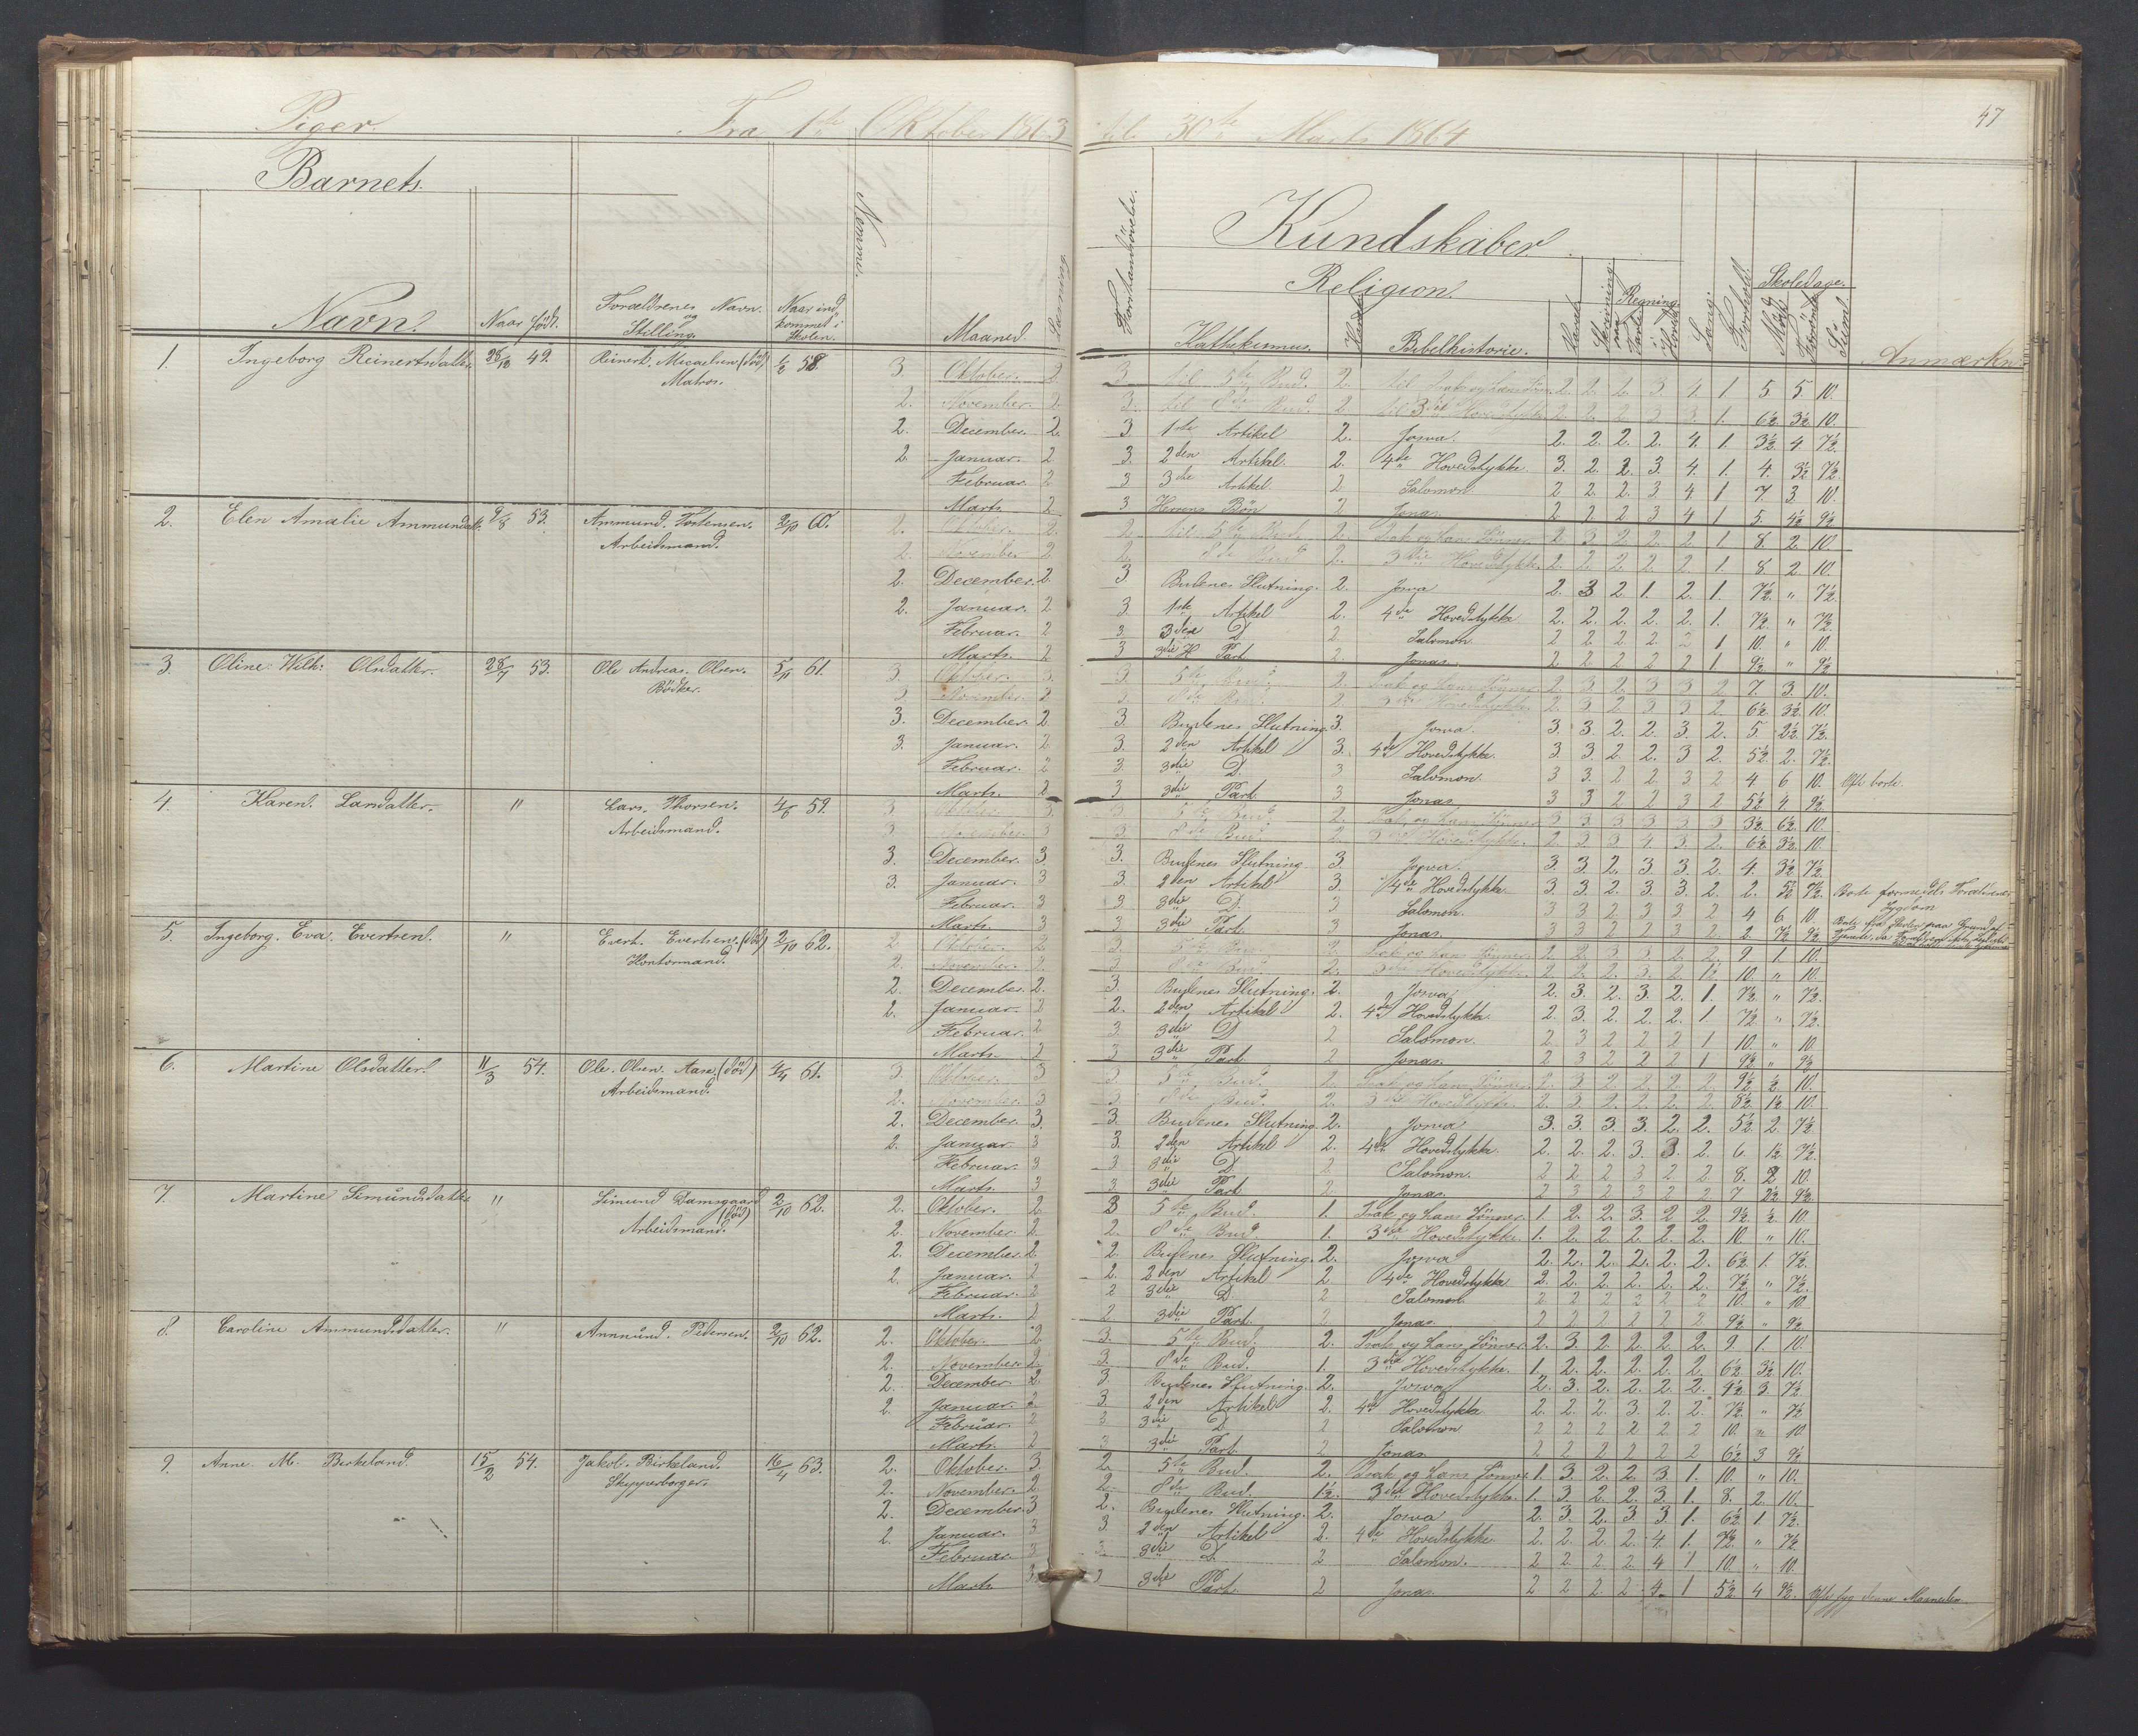 47
Piger. Fra 1ste Oktober 1863 til 30te Marts 1864
Barnets.
Kundskaber.
Religion.
Navn. Naar født. Forældrenes Navn og Stilling. Naar ind kommet i Skolen. Nummer. Maaned. Læsning.
Forstandsøvelse. Kathekismus. Bibelhistorie. Karakt. Skrivning. Regning. Sang. Forhold. Skoledage. Mødt Forsømt Sum. Anmærkn.
1. Ingeborg Reinertsdatter 28/12 49. Reinert. Micaelsen (død) Matros. 1/2 58. 3 Oktober. 2. 3 til 5te Bud. 2. 2. 2. 2. 3 4. 1 5. 5. 10.
2. November. 2. 3. til 8de Bud 2 til 3die Hovedstykke 2 2. 2 3 3. 1. 6½ 3½ 10.
2. December. 2. 3 1ste Artikel 2. Josva. 2. 2. 2. 2. 4. 1. 3½ 4. 7½
2. Januar. 2 3. 2den Artikel. 2. 4de Hovedstykke. 3. 2. 2. 3. 4. 1. 4. 3½ 7½
Februar 2 3 3die Artikel. 2 Salomon. 2 2. 2. 3. 4 1 7. 3 10.
Marts 2 3 Herrens Bøn 2 Jonas. 2. 2. 2 3 4 1 5. 4½ 9½
2. Elen Amalie Ammundsdtt. 9/8 53. Ammund. Tortensen. Arbeidsmand. 2/10 60. 2. Oktober. 2. 2 til 5te Bud. 2. Isak og hans Sønner 2 3 2 2. 2 1. 8. 2. 10.
2. November 2 2. 8de Bud 2. 3die Hovedstykke. 2. 2 2 2. 2 1. 8 2. 10.
2. December. 2 3 Budenes Slutning. 2. Josva 2. 3 2 1. 2. 1. 7½ " 7½
2. Januar. 2 3. 1ste Artikel 2. 4de Hovedstykke 2. 2. 2. 2. 2. 1. 7½ " 7½
Februar. 2 3. 3die D. 2. Salomon 2 2 2 2 2 1 10. " 10.
Marts. 2 3 3die H Part 2. Jonas. 2 2 2 2 2 1 9½ " 9½
3. Oline Wilh: Olsdatter. 28/7 53. Ole Andreas Olsen. Bødker. 5/11 61. 3. Oktober. 3. 3. 5te Bud. 2. Isak og hans Sønner 2 3. 2. 3 3 2 7. 3. 10.
3 November. 2 3 8de Bud. 2. 3die Hovedstykke 2. 3 2 3 3 2 6½ 3½ 10.
3. December. 2. 3 Budenes Slutning 3. Josva 3. 3. 2. 2. 3. 2. 5 2½ 7½
3. Januar. 2. 3. 2den Artikel 3. 4de Hovedstykke. 3. 3 2. 2. 3 2. 5½ 2. 7½
Februar. 2 3. 3die D. 3 Salomon. 3 3. 2 2 3 2 4 6 10. Ofte borte.
Marts. 2 3 3die Part. 3 Jonas. 3 3 2 2 3 2 5½ 4. 9½
4. Karen. Larsdatter. " Lars. Thorsen. Arbeidsmand. 4/6 59. 3 Oktober 3. 3 5te Bud. 2. Isak og hans Sønner 3 3 3 3 3 3 3½ 6½ 10.
3 November 3 3 8de Bud. 2. 3die Hovedstykke. 2. 3. 3 4. 3. 2. 6½ 3½ 10.
3. December 3. 3. Budenes Slutning 3. Josva. 3. 3. 2. 3. 3. 2. 4. 3½ 7½
3. Januar. 3 3. 2den Artikel 3. 4de Hovedstykke. 3. 3 2. 3 3. 2. 2. 5½ 7½ Borte formedels Forældrenes Sygdom
Februar. 3 3 3die D. 3 Salomon. 3 3 2 3 3 2 4 6. 10.
Marts. 3 3 3die Part. 3 Jonas. 3 3 2 2 3 2 2 7½ 9½
5. Ingeborg. Eva. Evertsen. " Evert. Evertsen. (død) Kontormand. 2/10 62. 2 Oktober. 2 3. 5te Bud 2. Isak og hans Sønner 2 2. 3 3 2. 2. 9. 1 10.
2. November. 2. 3. 8de Bud. 2. 3die Hovedstykke 2. 2 2. 3. 2. 1½ 10. " 10.
2. December. 2. 3. Budenes Slutning. 2. Josva 2. 3. 2. 3. 2. 1. 7½ " 7½
2. Januar. 2 2. 2den Artikel 2. 4de Hovedstykke. 2. 3. 2. 2. 2. 1 7½ " 7½
Februar. 2 3 3die D 2 Salomon. 2 3 2 2 2 1 10. " 10.
Marts. 2 3 3die Part. 2 Jonas. 2 3 2 2 2 1 9½ " 9½
6. Martine Olsdatter. 11/3 54. Ole. Olsen. Aase. (død) Arbeidsmand. 4/4 61. 3 Oktober. 3 3. 5te Bud. 2. Isak og hans Sønner. 2. 3. 2. 2. 2. 2. 9½ ½ 10.
2. November. 3 3. 8de Bud. 2. 3die Hovedstykke. 2. 3. 2. 2. 2. 2. 8½ 1½ 10.
2. December. 3. 3. Budenes Slutning. 2. Josva 3. 3. 3. 3. 2. 2. 5½ 2. 7½
2. Januar 3 3. 2den Artikel 2. 4de Hovedstykke. 2. 2. 2. 3. 3. 2. 6. 1½ 7½
Februar. 3 3 3die D. 2 Salomon. 2 2 2 3 2 2 8. 2 10.
Marts. 3 3 3die Part. 2. Jonas. 2 3 2 3 2 2 7 2½ 9½
7. Martine Simundsdatter " Simund Damsgaard (død) Arbeidsmand. 2/10 62. 2. Oktober. 2. 3 5te Bud. 1. Isak og hans Sønner. 1. 2. 2. 3. 2 2. 9½ ½ 10.
2. November 2. 2. 8de Bud. 1. 3die Hovedstykke. 1. 2. 2. 2. 2. 2. 10 " 10.
2. December. 2 2. Budenes Slutning. 2. Josva 2. 2. 2. 2. 2. 2. 6½ 1. 7½
2. Januar. 2 2. 2den Artikel 2. 4de Hovedstykke 2. 2. 2. 2. 2. 2. 7½ " 7½
Februar. 2 2 3die D. 2 Salomon. 2 2 2 2 2 2 10. " 10.
Marts. 2 2 3die Part. 2 Jonas. 2 2 2 2 2 2 9½ " 9½
8. Caroline Ammundsdatter. " Ammund. Pedersen. 2/10 62. 2. Oktober. 2 3. 5te Bud. 2. Isak og hans Sønner 2. 3. 2. 2. 2. 2. 9. 1. 10.
2. November. 2. 3. 8de Bud. 1. 3die Hovedstykke. 1. 2. 2. 2. 2. 2. 6½ 3½ 10.
2. December. 2 3 Budenes Slutning. 2. Josva 2. 3. 2. 2. 2. 2. 4½ 3. 7½
2. Januar. 2 3. 2den Artikel 2. 4de Hovedstykke 2. 2. 2. 3. 2. 2. 7½ " 7½
Februar. 2 3 3die D. 2 Salomon 2 2 2 2 2 2 10. " 10
Marts. 2 3 3die Part. 2 Jonas. 2 2 2 2 2 2 6½ 3 9½
9. Anne. M. Birkeland. 15/2 54. Jakob. Birkeland. Skipperborger. 16/4 63. 2. Oktober. 3 2. 5te Bud. 2. Isak og hans Sønner 1. 3. 2. 2. 3 1. 10. " 10.
2. November. 2 2. 8de Bud. 1½ 3die Hovedstykke. 1. 3. 2. 2. 3. 1. 8. 2. 10.
2. December. 3 2. Budenes Slutning. 2. Josva 2. 3. 2. 3 3 1. 6½ 1. 7½
2. Januar. 3 3. 2den Artikel 2. 4de Hovedstykke 2. 2. 2. 2 4. 1. 7½ " 7½
Februar. 3 3. 3die D. 2 Salomon. 2 2. 2 2. 4 1 10. " 10.
Marts. 3 3 3die Part. 2 Jonas. 2 2 2. 2 4. 1 5½ 4 9½ Ofte syg denne Maaneden